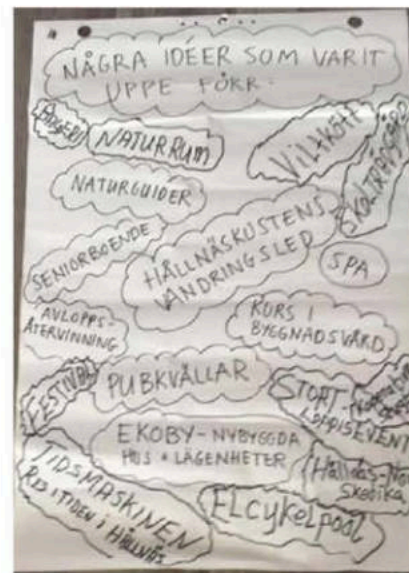 NÅGRA IDÉER SOM VARIT
UPPE FÖRR:
NATURRUM
VILTKÖTT
SKOLTRÄDGÅRD
NATURGUIDER
SENIORBOENDE
HÅLLNÄSKUSTENS
VANDRINGSLED
SPA
AVLOPPS-
ÅTERVINNING
KURS I
BYGGNADSVÅRD
FESTIVAL
PUBKVÄLLAR
STORT
LOPPISEVENT
EKOBY-NYBYGGDA
HUS + LÄGENHETER
Hållnäs-
Skedika
TIDSMASKINEN
RES I TIDEN I HÅLLNÄS
ELcykelpool